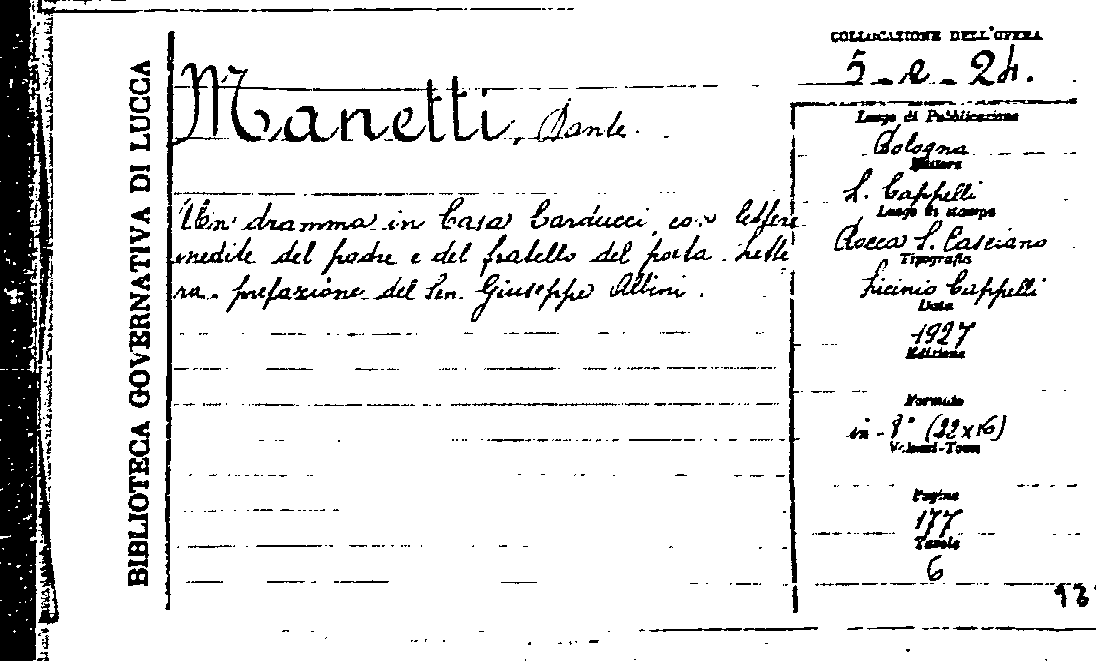 BIBLIOTECA GOVERNATIVA DI LUCCA
Manetti, Dante.
Un dramma in Casa Carducci, con lettere
inedite del padre e del fratello del poeta. Lette
ra - prefazione del Sen. Giuseppe Albini.
COLLOCAZIONE DELL'OPERA
5 - e - 24.
Luogo di Pubblicazione
Bologna
Editore
L. Cappelli
Luogo di stampa
Rocca S. Casciano
Tipografia
Licinio Cappelli
Data
1927
Edizione
Formato
in - 8° (22x16)
Volumi-Tomi
Pagine
177
Tavole
6